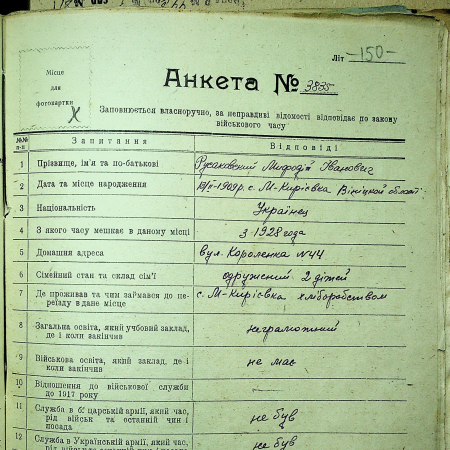 Літ -150-
Місце
для
фотокартки
Анкета № 3835
Заповнюється власноручно, за неправдиві відомості відповідає по закону
військового часу
№№ п-п Запитання Відповіді
1 Прізвище, ім'я та по-батькові Русаковский Мифодій Иванович
2 Дата та місце народження 1909 р. с. М-Кирієвка Вініцкой області
3 Національність Українец
4 З якого часу мешкає в даному місці з 1928 года
5 Домашня адреса вул. Короленка №44
6 Сімейний стан та склад сім'ї одружений 2 дітей
7 Де проживав та чим займався до пе-
реїзду в дане місце с. М-Кирієвка хліборобством
8 Загальна освіта, який учбовий заклад,
де і коли закінчив неграмотний
9 Військова освіта, який заклад, де і
коли закінчив не має
10 Відношення до військової служби
до 1917 року —
11 Служба в б. царській армії, який час,
рід військ та останній чин і
посада не був
12 Служба в Українській армії, який час,
не був